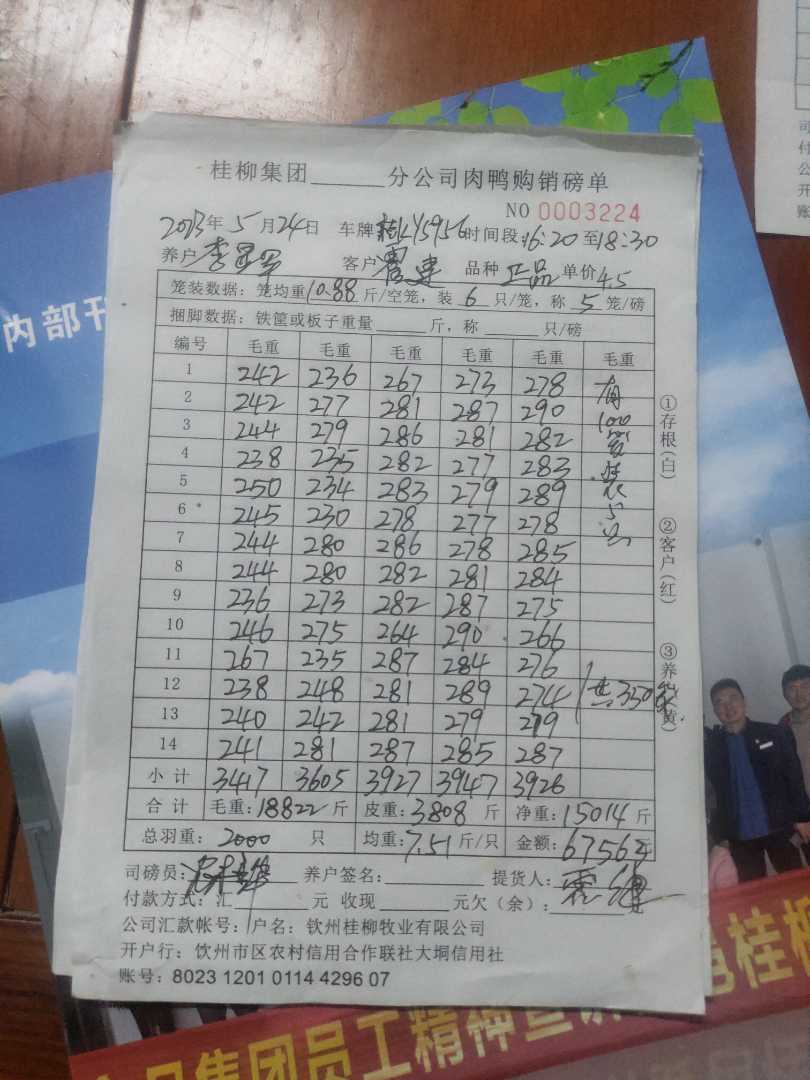 内部刊
桂柳集团______分公司肉鸭购销磅单
NO 0003224
2023年5月24日 车牌 桂LY5956 时间段:16:20至18:30
养户 李 客户 霍建 品种 正品 单价 4.5
笼装数据：笼均重10.88斤/空笼，装6只/笼，称5笼/磅
捆脚数据：铁筐或板子重量____斤，称____只/磅
编号 毛重 毛重 毛重 毛重 毛重 毛重
1 242 236 267 273 278
2 242 277 281 287 290
3 244 279 286 281 282
4 238 235 282 277 283
5 250 234 283 279 289
6 245 230 278 277 278
7 244 280 286 278 285
8 244 280 282 281 284
9 236 273 282 287 275
10 246 275 264 290 266
11 267 235 287 284 276
12 238 248 281 289 274 共350
13 240 242 281 279 279
14 241 281 287 285 287
有100笼装5只
小计 3417 3605 3927 3947 3926
合计 毛重:18822斤 皮重:3808斤 净重:15014斤
总羽重：2000只 均重:7.51斤/只 金额:67563
①存根(白) ②客户(红) ③养(黄)
司磅员: 养户签名:________ 提货人: 霍建
付款方式：汇______元 收现______元欠（余）:______
公司汇款帐号：户名：钦州桂柳牧业有限公司
开户行：饮州市区农村信用合作联社大垌信用社
账号：8023 1201 0114 4296 07
集团员工精神
桂柳